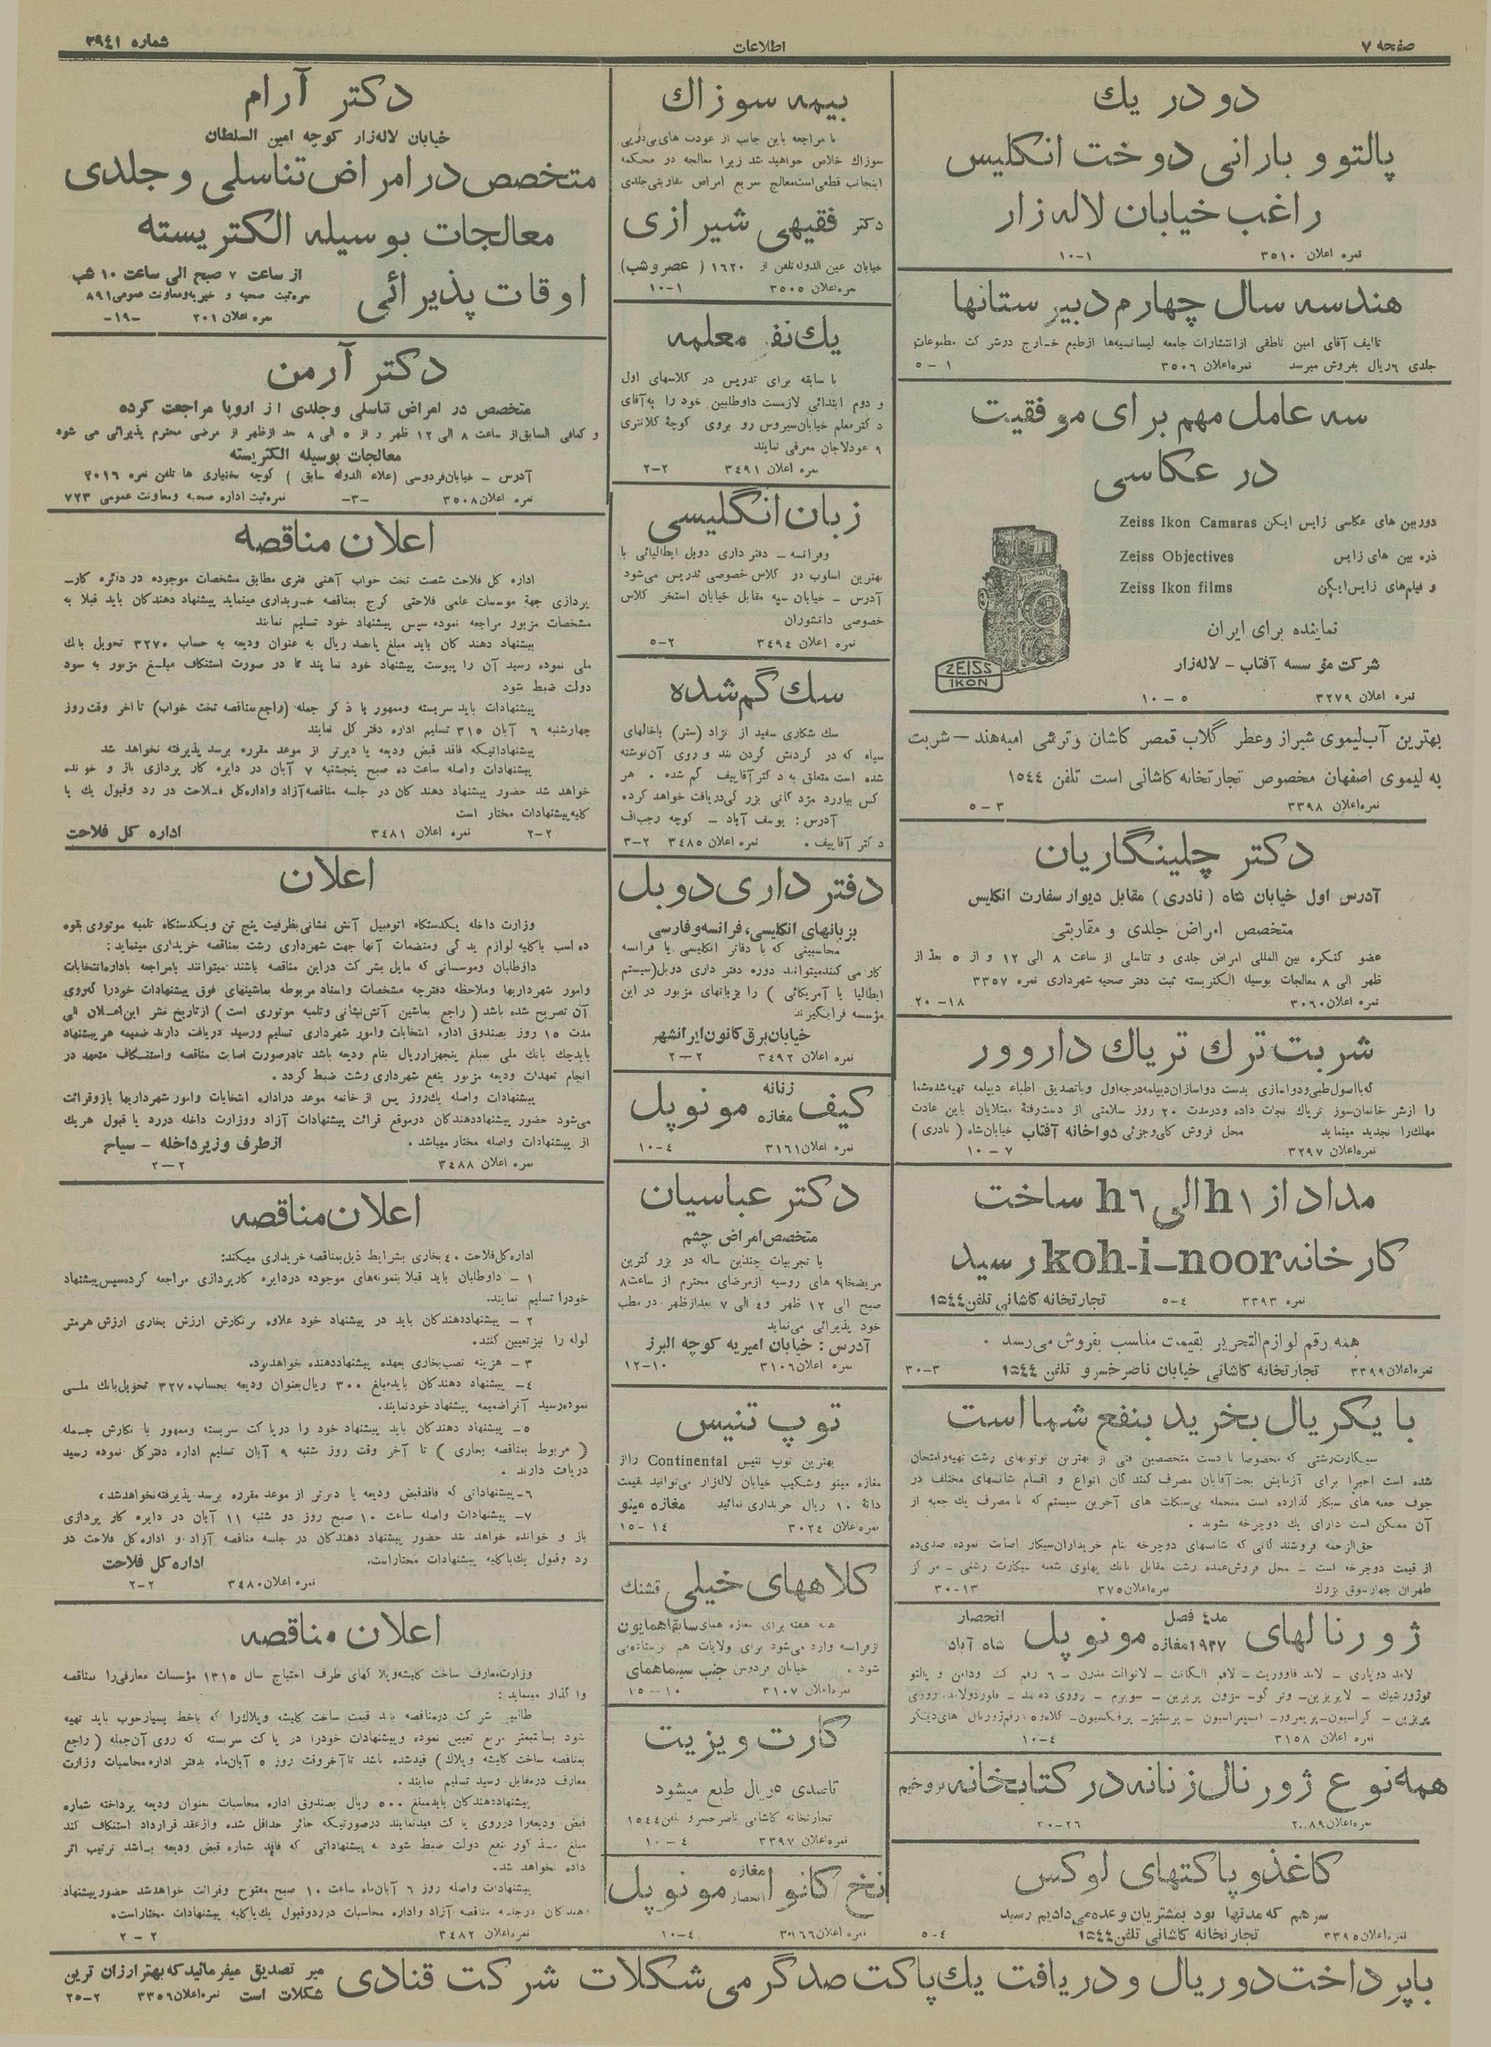 صفحه ۷
اطلاعات
شماره ۳۹٤۱
دو در یك
پالتو و بارانی دوخت انگلیس
راغب خیابان لاله زار
نمره اعلان ۳۵۱۰ ۱-۱۰
هندسه سال چهارم دبیرستانها
تالیف آقای امین ناطقی از انتشارات جامعه لیسانسیه‌ها از طبع خارج در شرکت مطبوعات
جلدی ٦ ریال بفروش میرسد نمره اعلان ۳۵۰٦ ۱-۵
سه عامل مهم برای موفقیت
در عکاسی
دوربین های عکاسی زایس ایکن Zeiss Ikon Camaras
ذره بین های زایس Zeiss Objectives
و فیلم‌های زایس ایکن Zeiss Ikon films
نماینده برای ایران
شرکت مؤسسه آفتاب - لاله‌زار
ZEISS IKON
نمره اعلان ۳۲۷۹ ۵-۱۰
بهترین آب‌لیموی شیراز وعطر گلاب قمصر کاشان وترشی انبه‌هند - شربت
به لیموی اصفهان مخصوص تجارتخانه کاشانی است تلفن ۱۵٤٤
نمره اعلان ۳۳۹۸ ۳-۵
دکتر چلینگاریان
آدرس اول خیابان شاه (نادری) مقابل دیوار سفارت انگلیس
متخصص امراض جلدی و مقاربتی
عضو کنگره بین المللی امراض جلدی و تناسلی از ساعت ۸ الی ۱۲ و از ۵ بعد از
ظهر الی ۸ معالجات بوسیله الکتریسته ثبت دفتر صحیه شهرداری نمره ۳۳۵۷
نمره اعلان ۳۰٦۰ ۱۸-۲۰
شربت ترك تریاك دارو ور
که با اصول طبی و دواسازی بدست دواسازان دیپلمه درجه اول و با تصدیق اطباء دیپلمه تهیه شده شما
را از شر خانمان‌سوز تریاك نجات داده و در مدت ۲۰ روز سلامتی از دست رفتهٔ مبتلایان باین عادت
مهلك را تجدید مینماید محل فروش کلی وجزئی دواخانه آفتاب خیابان شاه (نادری)
نمره اعلان ۳۲۹۷ ۷-۱۰
مداد از h۱ الی h٦ ساخت
کارخانه koh-i-noor رسید
نمره ۳۳۹۳ ٤-۵ تجارتخانه کاشانی تلفن ۱۵٤٤
همه رقم لوازم‌التحریر بقیمت مناسب بفروش می‌رسد .
نمره اعلان ۳۳۹۹ تجارتخانه کاشانی خیابان ناصر خسرو تلفن ۱۵٤٤ ۳-۳۰
با یکریال بخرید بنفع شما است
سیگارت‌رشتی که مخصوصا با دست متخصصین فنی از بهترین توتونهای رشت تهیه و امتحان
شده است اخیرا برای آزمایش بخت آقایان مصرف کنندگان انواع و اقسام شانسهای مختلف در
جوف جعبه های سیگار گذارده است منجمله بی‌سکلت های آخرین سیستم که با مصرف یك جعبه از
آن ممکن است دارای یك دوچرخه بشوید .
حق‌الزحمه فروشندگانی که شانسهای دوچرخه بنام خریداران سیگار اصابت نموده صدی ده
از قیمت دوچرخه است - محل فروش عمده رشت مقابل بانك پهلوی شعبه سیگارت رشتی - مرکز
طهران چهارسوق بزرك نمره اعلان ۳۷۵ ۱۳-۳۰
ژورنالهای مد ٤ فصل ۱۹۳۷ مغازه مونوپل انحصار شاه آباد
نمره اعلان ۳۱۵۸ ٤-۱۰
همه نوع ژورنال زنانه در کتابخانه بروخیم
نمره اعلان ۲۰۸۹ ۲٦-۳۰
کاغذ و پاکتهای لوکس
سر هم که مدتها بود بمشتریان وعده می‌دادیم رسید
نمره اعلان ۳۳۹۵ تجارتخانه کاشانی تلفن ۱۵٤٤ ٤-۵
بیمه سوزاك
با مراجعه باین جانب از عودت های پی‌درپی
سوزاك خلاص خواهید شد زیرا معالجه در محکمه
اینجانب قطعی است معالج سریع امراض مقاربتی جلدی
دکتر فقیهی شیرازی
خیابان عین الدوله تلفن از ۱٦۲۰ (عصر و شب)
نمره اعلان ۳۵۰۵ ۱-۱۰
یك نفر معلمه
با سابقه برای تدریس در کلاسهای اول
و دوم ابتدائی لازمست داوطلبین خود را به آقای
دکتر معلم خیابان سیروس رو بروی کوچهٔ کلانتری
۹ عودلاجان معرفی نمایند
نمره اعلان ۳٤۹۱ ۲-۲
زبان انگلیسی
وفرانسه - دفتر داری دوبل ایطالیائی با
بهترین اسلوب در کلاس خصوصی تدریس می‌شود
آدرس - خیابان سپه مقابل خیابان استخر کلاس
خصوصی دانشوران
نمره اعلان ۳٤۹٤ ۲-۵
سك گم شده
سك شکاری سفید از نژاد (ستر) باخالهای
سیاه که در گردنش گردن بند و روی آن نوشته
شده است متعلق به دکتر آقاییف گم شده . هر
کس بیاورد مزدگانی بزرگی دریافت خواهد کرد.
آدرس: یوسف آباد - کوچه رجب‌اف
دکتر آقاییف . نمره اعلان ۳٤۸۵ ۲-۳
دفتر داری دوبل
بزبانهای انگلیسی، فرانسه و فارسی
محاسبینی که با دفاتر انگلیسی یا فرانسه
کار می کنند میتوانند دوره دفتر داری دوبل (سیستم
ایطالیا یا آمریکائی) را بزبانهای مزبور در این
مؤسسه فرا بگیرند
خیابان برق کانون ایرانشهر
نمره اعلان ۳٤۹۲ ۲-۲
کیف زنانه مغازه مونوپل
نمره اعلان ۳۱٦۱ ٤-۱۰
دکتر عباسیان
متخصص امراض چشم
با تجربیات چندین ساله در بزرگترین
مریضخانه های روسیه از مرضای محترم از ساعت ۸
صبح الی ۱۲ ظهر و ٤ الی ۷ بعدازظهر در مطب
خود پذیرائی می‌نماید
آدرس: خیابان امیریه کوچه البرز
نمره اعلان ۳۱۰٦ ۱۰-۱۲
توپ تنیس
بهترین توپ تنیس Continental را از
مغازه مینو وشکیب خیابان لاله‌زار می‌توانید بقیمت
دانهٔ ۱۰ ریال خریداری نمائید مغازه مینو
نمره اعلان ۳۰۲٤ ۱٤-۱۵
کلاههای خیلی قشنك
همه هفته برای مغازه همای سابقا همایون
از فرانسه وارد می‌شود برای ولایات هم فرستاده می
شود . خیابان فردوس جنب سینما همای
نمره اعلان ۳۱۰۷ ۱۰-۱۵
کارت ویزیت
تا صدی ۵ ریال طبع میشود
تجارتخانه کاشانی ناصر خسرو تلفن ۱۵٤٤
نمره اعلان ۳۳۹۷ ٤-۱۰
نخ کانوا مغازه انحصار مونوپل
نمره اعلان ۳۰۱٦٦ ٤-۱۰
دکتر آرام
خیابان لاله‌زار کوچه امین السلطان
متخصص در امراض تناسلی و جلدی
معالجات بوسیله الکتریسته
اوقات پذیرائی از ساعت ۷ صبح الی ساعت ۱۰ شب
نمره ثبت صحیه و خیریه و معاونت عمومی ۸۹۱
نمره اعلان ۲۰۱ -۱۹-
دکتر آرمن
متخصص در امراض تناسلی وجلدی از اروپا مراجعت کرده
و کمافی السابق از ساعت ۸ الی ۱۲ ظهر و از ۵ الی ۸ بعد ازظهر از مرضی محترم پذیرائی می شود
معالجات بوسیله الکتریسته
آدرس - خیابان فردوسی (علاء الدوله سابق) کوچه بختیاری ها تلفن نمره ۲۰۱٦
نمره اعلان ۳۵۰۸ -۳- نمره ثبت اداره صحیه و معاونت عمومی ۷۲۳
اعلان مناقصه
اداره کل فلاحت شصت تخت خواب آهنی فنری مطابق مشخصات موجوده در دائره کار-
پردازی جهة موسسات علمی فلاحتی کرج بمناقصه خریداری مینماید پیشنهاد دهندکان باید قبلا به
مشخصات مزبور مراجعه نموده سپس پیشنهاد خود تسلیم نمایند
پیشنهاد دهند کان باید مبلغ پانصد ریال به عنوان ودیعه به حساب ۳۲۷۰ تحویل بانك
ملی نموده رسید آن را پیوست پیشنهاد خود نمایند تا در صورت استنکاف مبلغ مزبور به سود
دولت ضبط شود
پیشنهادات باید سربسته وممهور با ذکر جمله (راجع بمناقصه تخت خواب) تا آخر وقت روز
چهارشنبه ٦ آبان ۳۱۵ تسلیم اداره دفتر کل نمایند
پیشنهاداتیکه فاقد قبض ودیعه یا دیرتر از موعد مقرره برسد پذیرفته نخواهد شد
پیشنهادات واصله ساعت ده صبح پنجشنبه ۷ آبان در دایره کار پردازی باز و خوانده
خواهد شد حضور پیشنهاد دهندکان در جلسه مناقصه آزاد و اداره کل فلاحت در رد وقبول یك یا
کلیه پیشنهادات مختار است
۲-۲ نمره اعلان ۳٤۸۱ اداره کل فلاحت
اعلان
وزارت داخله یکدستگاه اتومبیل آتش نشانی بظرفیت پنج تن و یکدستگاه تلمبه موتوری بقوه
ده اسب با کلیه لوازم یدکی ومنضمات آنها جهت شهرداری رشت بمناقصه خریداری مینماید:
داوطلبان وموسساتی که مایل بشرکت در این مناقصه باشند میتوانند با مراجعه باداره انتخابات
وامور شهرداریها وملاحظه دفترچه مشخصات واسناد مربوطه بماشینهای فوق پیشنهادات خودرا که روی
آن تصریح شده باشد (راجع بماشین آتش‌نشانی وتلمبه موتوری است) از تاریخ نشر این اعلان الی
مدت ۱۵ روز بصندوق اداره انتخابات وامور شهرداری تسلیم ورسید دریافت دارند ضمیمه هر پیشنهاد
بایدچك بانك ملی بمبلغ پنجهزار ریال بنام ودیعه باشد تا در صورت اصابت مناقصه واستنکاف متعهد در
انجام تعهدات ودیعه مزبور بنفع شهرداری رشت ضبط گردد .
پیشنهادات واصله یك‌روز پس از خاتمه موعد در اداره انتخابات وامور شهرداریها باز و قرائت
می‌شود حضور پیشنهاد دهندکان در موقع قرائت پیشنهادات آزاد و وزارت داخله در رد یا قبول هر یك
از پیشنهادات واصله مختار میباشد . از طرف وزیر داخله - سیاح
نمره اعلان ۳٤۸۸ ۲-۲
اعلان مناقصه
اداره کل فلاحت ٤۰ بخاری بشرایط ذیل بمناقصه خریداری میکند:
۱ - داوطلبان باید قبلا بنمونه‌های موجوده در دایره کارپردازی مراجعه کرده سپس پیشنهاد
خود را تسلیم نمایند.
۲ - پیشنهاد دهندکان باید در پیشنهاد خود علاوه بر نکارش ارزش بخاری ارزش هر متر
لوله را نیز تعیین کنند.
۳ - هزینه نصب بخاری بعهده پیشنهاد دهنده خواهد بود.
٤ - پیشنهاد دهندکان باید مبلغ ۳۰۰ ریال بعنوان ودیعه بحساب ۳۲۷۰ تحویل بانك ملی
نموده رسید آنرا ضمیمه پیشنهاد خود نمایند.
۵ - پیشنهاد دهندکان باید پیشنهاد خود را در پاکت سربسته وممهور با نکارش جمله
(مربوط بمناقصه بخاری) تا آخر وقت روز شنبه ۹ آبان تسلیم اداره دفتر کل نموده رسید
دریافت دارند .
٦ - پیشنهاداتی که فاقد قبض ودیعه یا دیرتر از موعد مقرره برسد پذیرفته نخواهد شد،
۷ - پیشنهادات واصله ساعت ۱۰ صبح روز دو شنبه ۱۱ آبان در دایره کار پردازی
باز و خوانده خواهد شد حضور پیشنهاد دهندکان در جلسه مناقصه آزاد و اداره کل فلاحت در
رد وقبول یك یا کلیه پیشنهادات مختار است. اداره کل فلاحت
نمره اعلان ۳٤۸۰ ۲-۲
اعلان مناقصه
وزارت معارف ساخت کلیشه و پلاکهای طرف احتیاج سال ۱۳۱۵ مؤسسات معارفی را بمناقصه
واگذار مینماید:
طالبین شرکت در مناقصه باید قیمت ساخت کلیشه و پلاك را که باخط بسیار خوب باید تهیه
شود بسانتیمتر مربع تعیین نموده و پیشنهادات خود را در پاکت سربسته که روی آن جمله (راجع
بمناقصه ساخت کلیشه و پلاك) قید شده باشد تا آخر وقت روز ۵ آبان ماه بدفتر اداره محاسبات وزارت
معارف در مقابل رسید تسلیم نمایند .
پیشنهاد دهندکان باید مبلغ ۵۰۰ ریال بصندوق اداره محاسبات بعنوان ودیعه پرداخته شماره
قبض ودیعه را در روی پاکت قید نمایند در صورتیکه حائز حداقل شده و از عقد قرارداد استنکاف کند
مبلغ مذکور بنفع دولت ضبط شود به پیشنهاداتی که فاقد شماره قبض ودیعه باشد ترتیب اثر
داده نخواهد شد.
پیشنهادات واصله روز ٦ آبان ماه ساعت ۱۰ صبح مفتوح وقرائت خواهد شد حضور پیشنهاد
دهندکان در جلسه مناقصه آزاد و اداره محاسبات در رد و قبول یك یا کلیه پیشنهادات مختار است.
نمره اعلان ۳٤۸۲ ۲-۲
با پرداخت دو ریال و دریافت یك پاکت صد گرمی شکلات شرکت قنادی میر تصدیق میفرمائید که بهتر ارزان ترین
شکلات است نمره اعلان ۳۳۵٦ ۲-۲۵